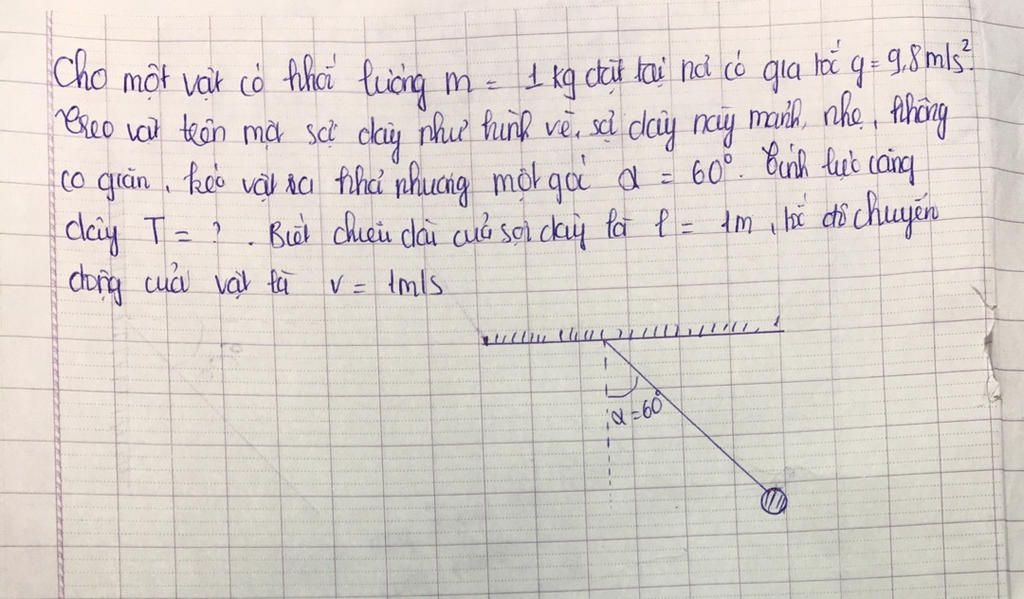 Cho một vật có khối lượng m = 1 kg đặt tại nơi có gia tốc g = 9,8 m/s².
Treo vật trên một sợi dây như hình vẽ, sợi dây này mảnh, nhẹ, không
co giãn, kéo vật ra khỏi phương một góc α = 60°. Tính lực căng
dây T = ? . Biết chiều dài của sợi dây là l = 1m, tốc độ chuyển
động của vật là v = 1m/s
α = 60°